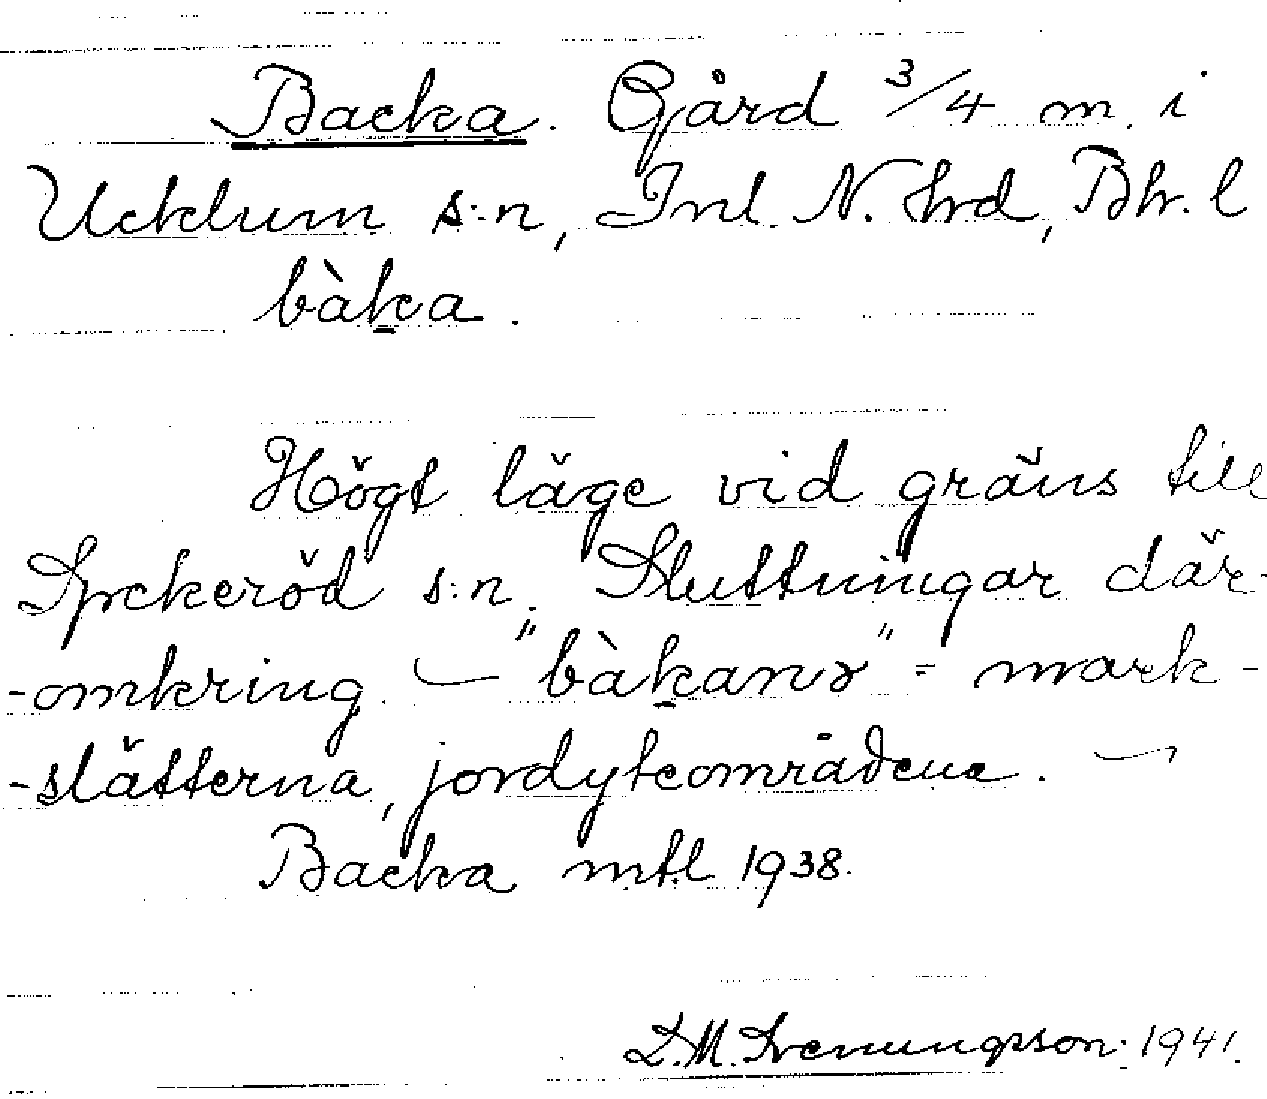 Backa. Gård 3/4 m. i
Ucklum s:n, Inl. N. hrd, Bh. l
bàka.
Högt läge vid gräns till
Spekeröd s:n. Sluttningar där-
-omkring. — "bàkanɤ" = mark-
-slätterna, jordyteområdena. —
Backa mtl 1938.
D.M. Svenungsson. 1941.